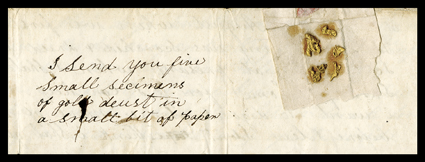 I send you five
small secimens
of gold deust in
a small bit of paper